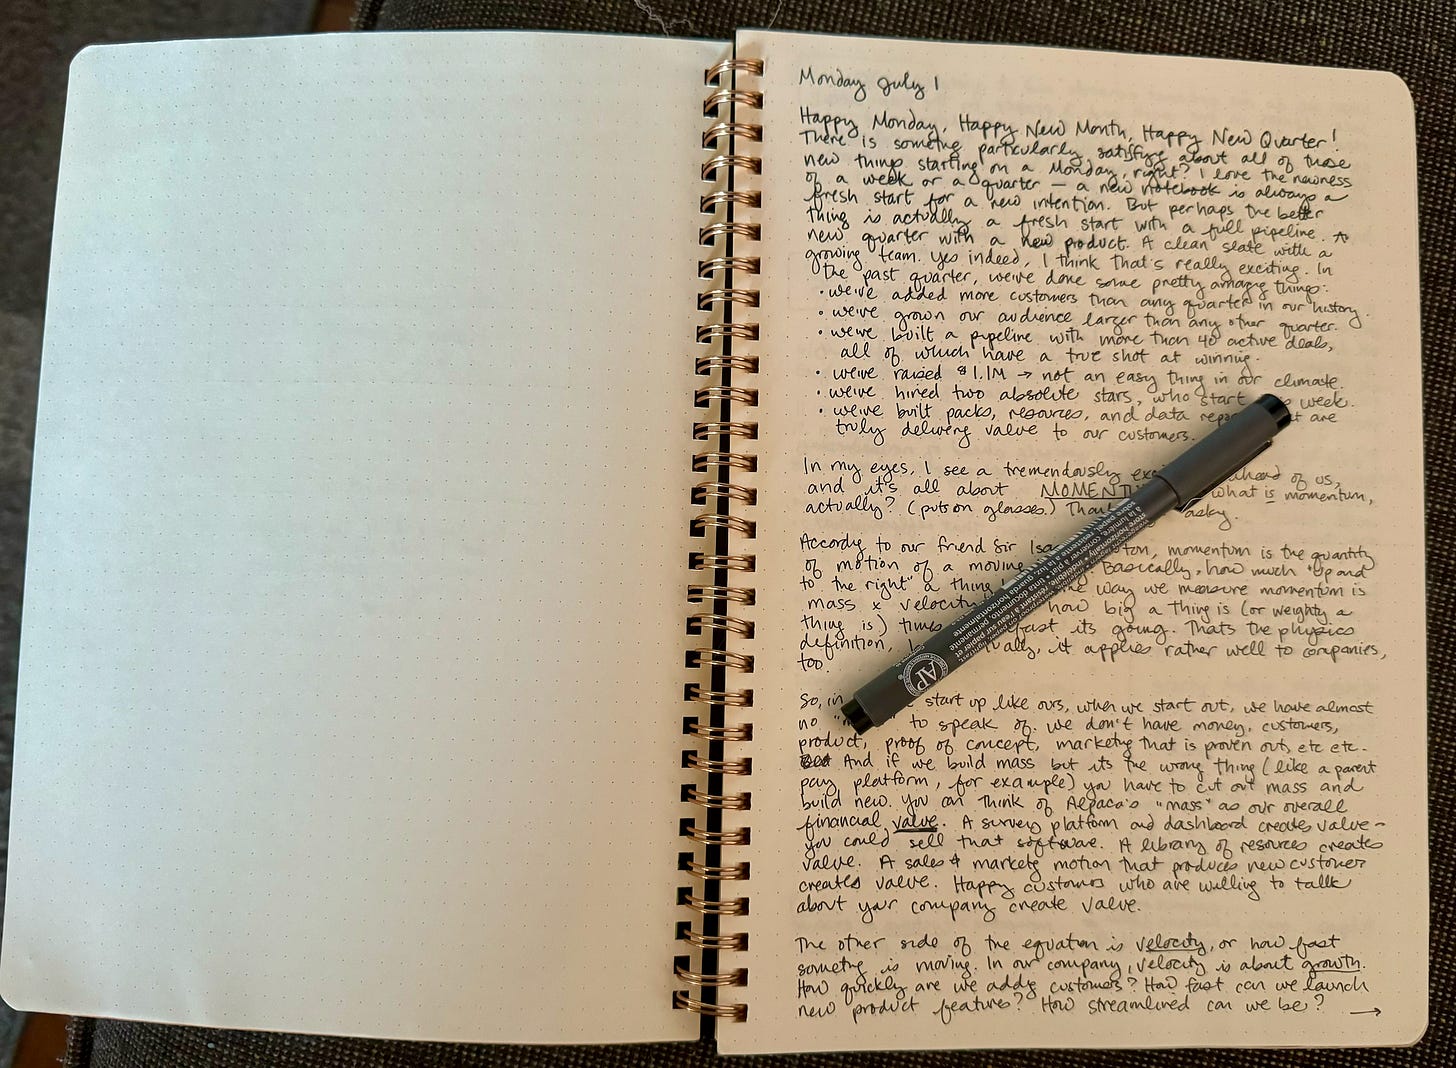 Monday July 1
Happy Monday, Happy New Month, Happy New Quarter!
There is somethg particularly satisfying about all of those
new things starting on a Monday, right? I love the newness
of a week or a quarter — a new notebook is always a
fresh start for a new intention. But perhaps the better
thing is actually a fresh start with a full pipeline. A
new quarter with a new product. A clean slate with a
growing team. Yes indeed, I think that's really exciting. In
the past quarter, we've done some pretty amazing things:
• we've added more customers than any quarter in our history.
• we've grown our audience larger than any other quarter.
• we've built a pipeline with more than 40 active deals,
all of which have a true shot at winning.
• we've raised $1.1M → not an easy thing in our climate.
• we've hired two absolute stars, who start week.
• we've built packs, resources, and data are
truly delivering value to our customers.
In my eyes, I see a tremendously ahead of us,
and it's all about what is momentum,
actually? (puts on glasses.)
According to our friend Sir momentum is the quantity
of motion of a moving Basically, how much "up and
to the right" a thing way we measure momentum is
mass x velocity how big a thing is (or weighty a
thing is) times fast its going. Thats the physics
definition, it applies rather well to companies,
too.
So, in start up like ours, when we start out, we have almost
no to speak of. we don't have money, customers,
product, proof of concept, marketing that is proven out, etc etc.
And if we build mass but its the wrong thing (like a parent
pay platform, for example) you have to cut out mass and
build new. You can think of Alpaca's "mass" as our overall
financial value. A survey platform and dashboard creates value –
you could sell that software. A library of resources creates
value. A sales & marketg motion that produces new customer
creates value. Happy customers who are willing to talk
about your company create value.
The other side of the equation is velocity, or how fast
somethg is moving. In our company, velocity is about growth.
How quickly are we addg customers? How fast can we launch
new product features? How streamlined can we be? →
AP